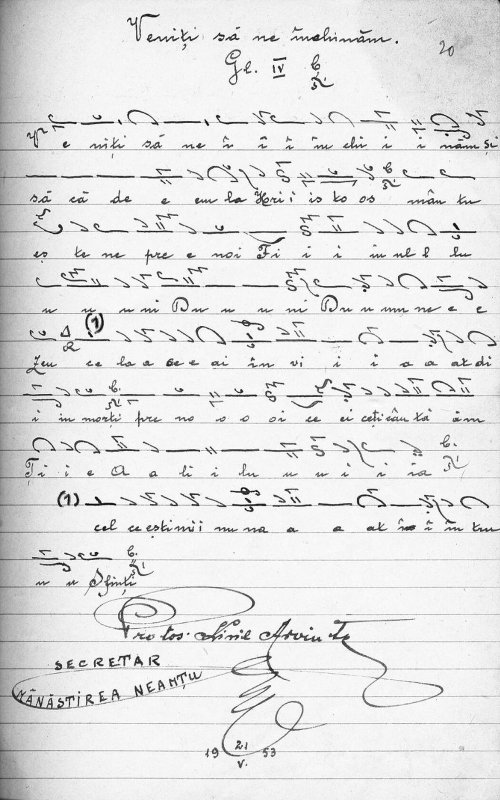 Veniți să ne închinăm.
20
Gl. IV
e niți să ne î î î în chi i i năm și
să că de e em la Hri i is to os mân tu
eș te ne pre e noi Fi i i i ul l lu
u u u ni Du u u ni Du u mne e e
(1)
Zeu ce la a ce e ai în vi i i a a at di
i in morți pre no o o oi ce ei ce ți cân tă ăm
Ți i e A a li i lu u u i i ia
(1)
cel ce ești mi nu na a a at î î în tru
u u Sfinți
Protos. Arvinte
SECRETAR
MÂNĂSTIREA NEAMȚU
19 21 53
V.